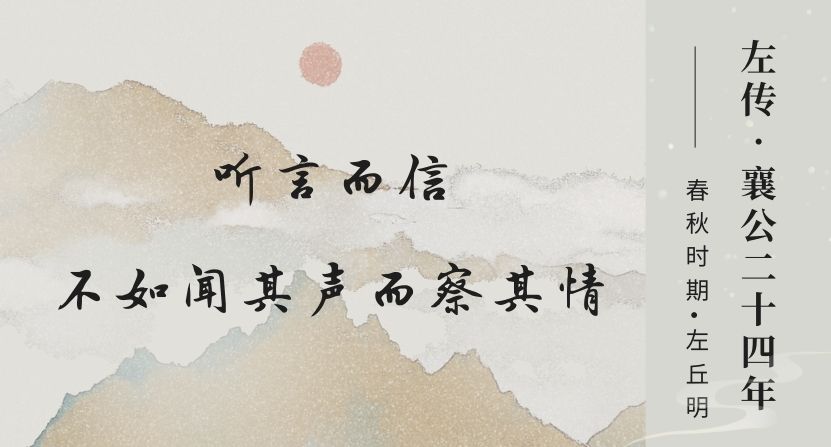 听言而信
不如闻其声而察其情
左传·襄公二十四年
——春秋时期·左丘明